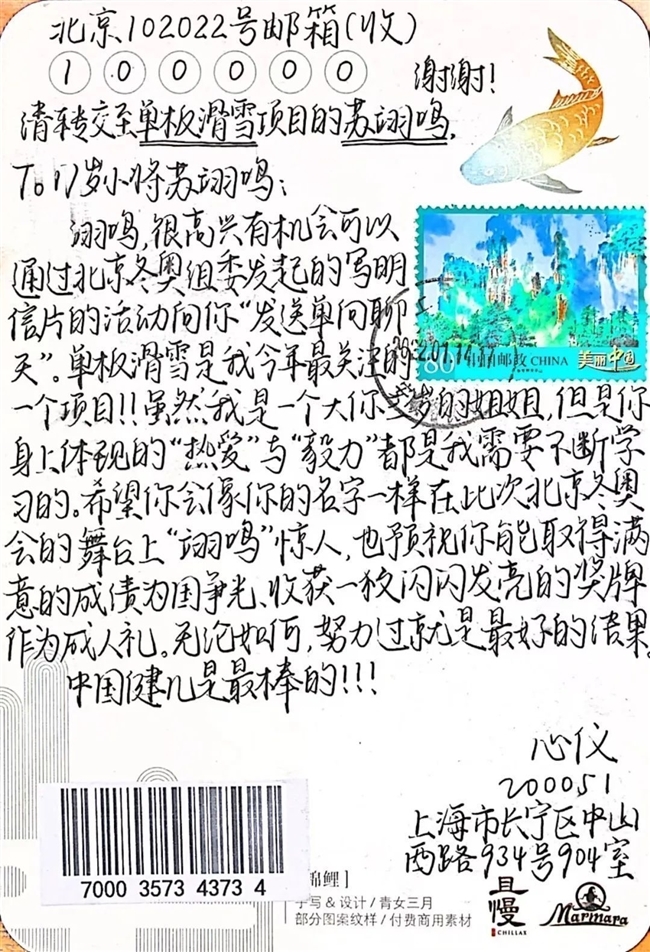 北京102022号邮箱(收)
1 0 0 0 0 0 谢谢!
请转交至单板滑雪项目的苏翊鸣.
To 17岁小将苏翊鸣:
翊鸣,很高兴有机会可以
通过北京冬奥组委发起的写明
信片的活动向你“发送单向聊
天”。单板滑雪是我今年最关注的
一个项目!!虽然我是一个大你 岁的姐姐,但是你
身上体现的“热爱”与“毅力”都是我需要不断学
习的。希望你会像你的名字一样在此次北京冬奥
会的舞台上“翊鸣”惊人,也预祝你能取得满
意的成绩为国争光、收获一枚闪闪发亮的奖牌
作为成人礼。无论如何,努力过就是最好的结果。
中国健儿是最棒的!!!
80 中国邮政 CHINA 美丽中国
心仪
200051
上海市长宁区中山
西路934号904室
7000 3573 4373 4
锦鲤]
手写&设计/青女三月
部分图案纹样/付费商用素材
且慢
CHILLAS
Marmara